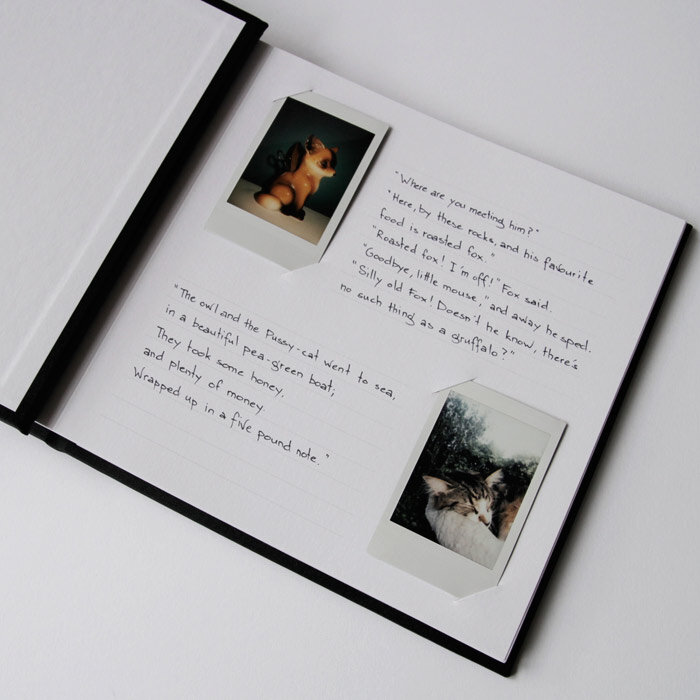 "Where are you meeting him?"
"Here, by these rocks, and his favourite
food is roasted fox."
"Roasted fox! I'm off!" Fox said.
"Goodbye, little mouse," and away he sped.
"Silly old Fox! Doesn't he know, there's
no such thing as a gruffalo?"
"The owl and the Pussy-cat went to sea,
in a beautiful pea-green boat;
They took some honey,
and plenty of money
Wrapped up in a five pound note."